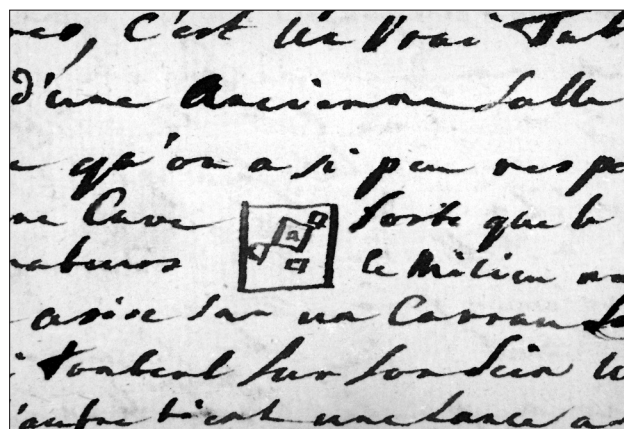 c'est un vrai Tab
d'une Ancienne Salle
qu'on a si peu respe
ne Cave Sorte que le
le Milieu
asise Sur un Carreau
Tombent Sur Son Sein
l'autre tient une lance a